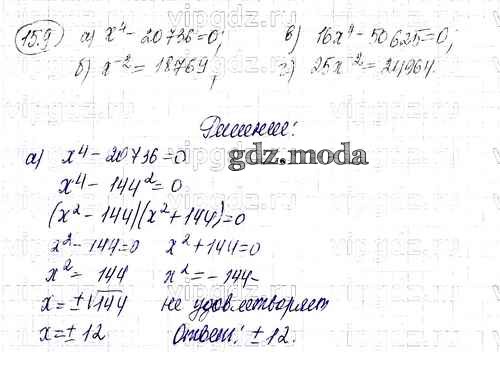 15.9 а) x⁴ - 20736 = 0; в) 16x⁴ - 50625 = 0;
б) x⁻² = 18769; г) 25x⁻² = 24964.
Решение:
gdz.moda
а) x⁴ - 20736 = 0
x⁴ - 144² = 0
(x² - 144)(x² + 144) = 0
x² - 144 = 0 x² + 144 = 0
x² = 144 x² = -144 -
x = ±√144 не удовлетворяет
x = ± 12 Ответ: ± 12.